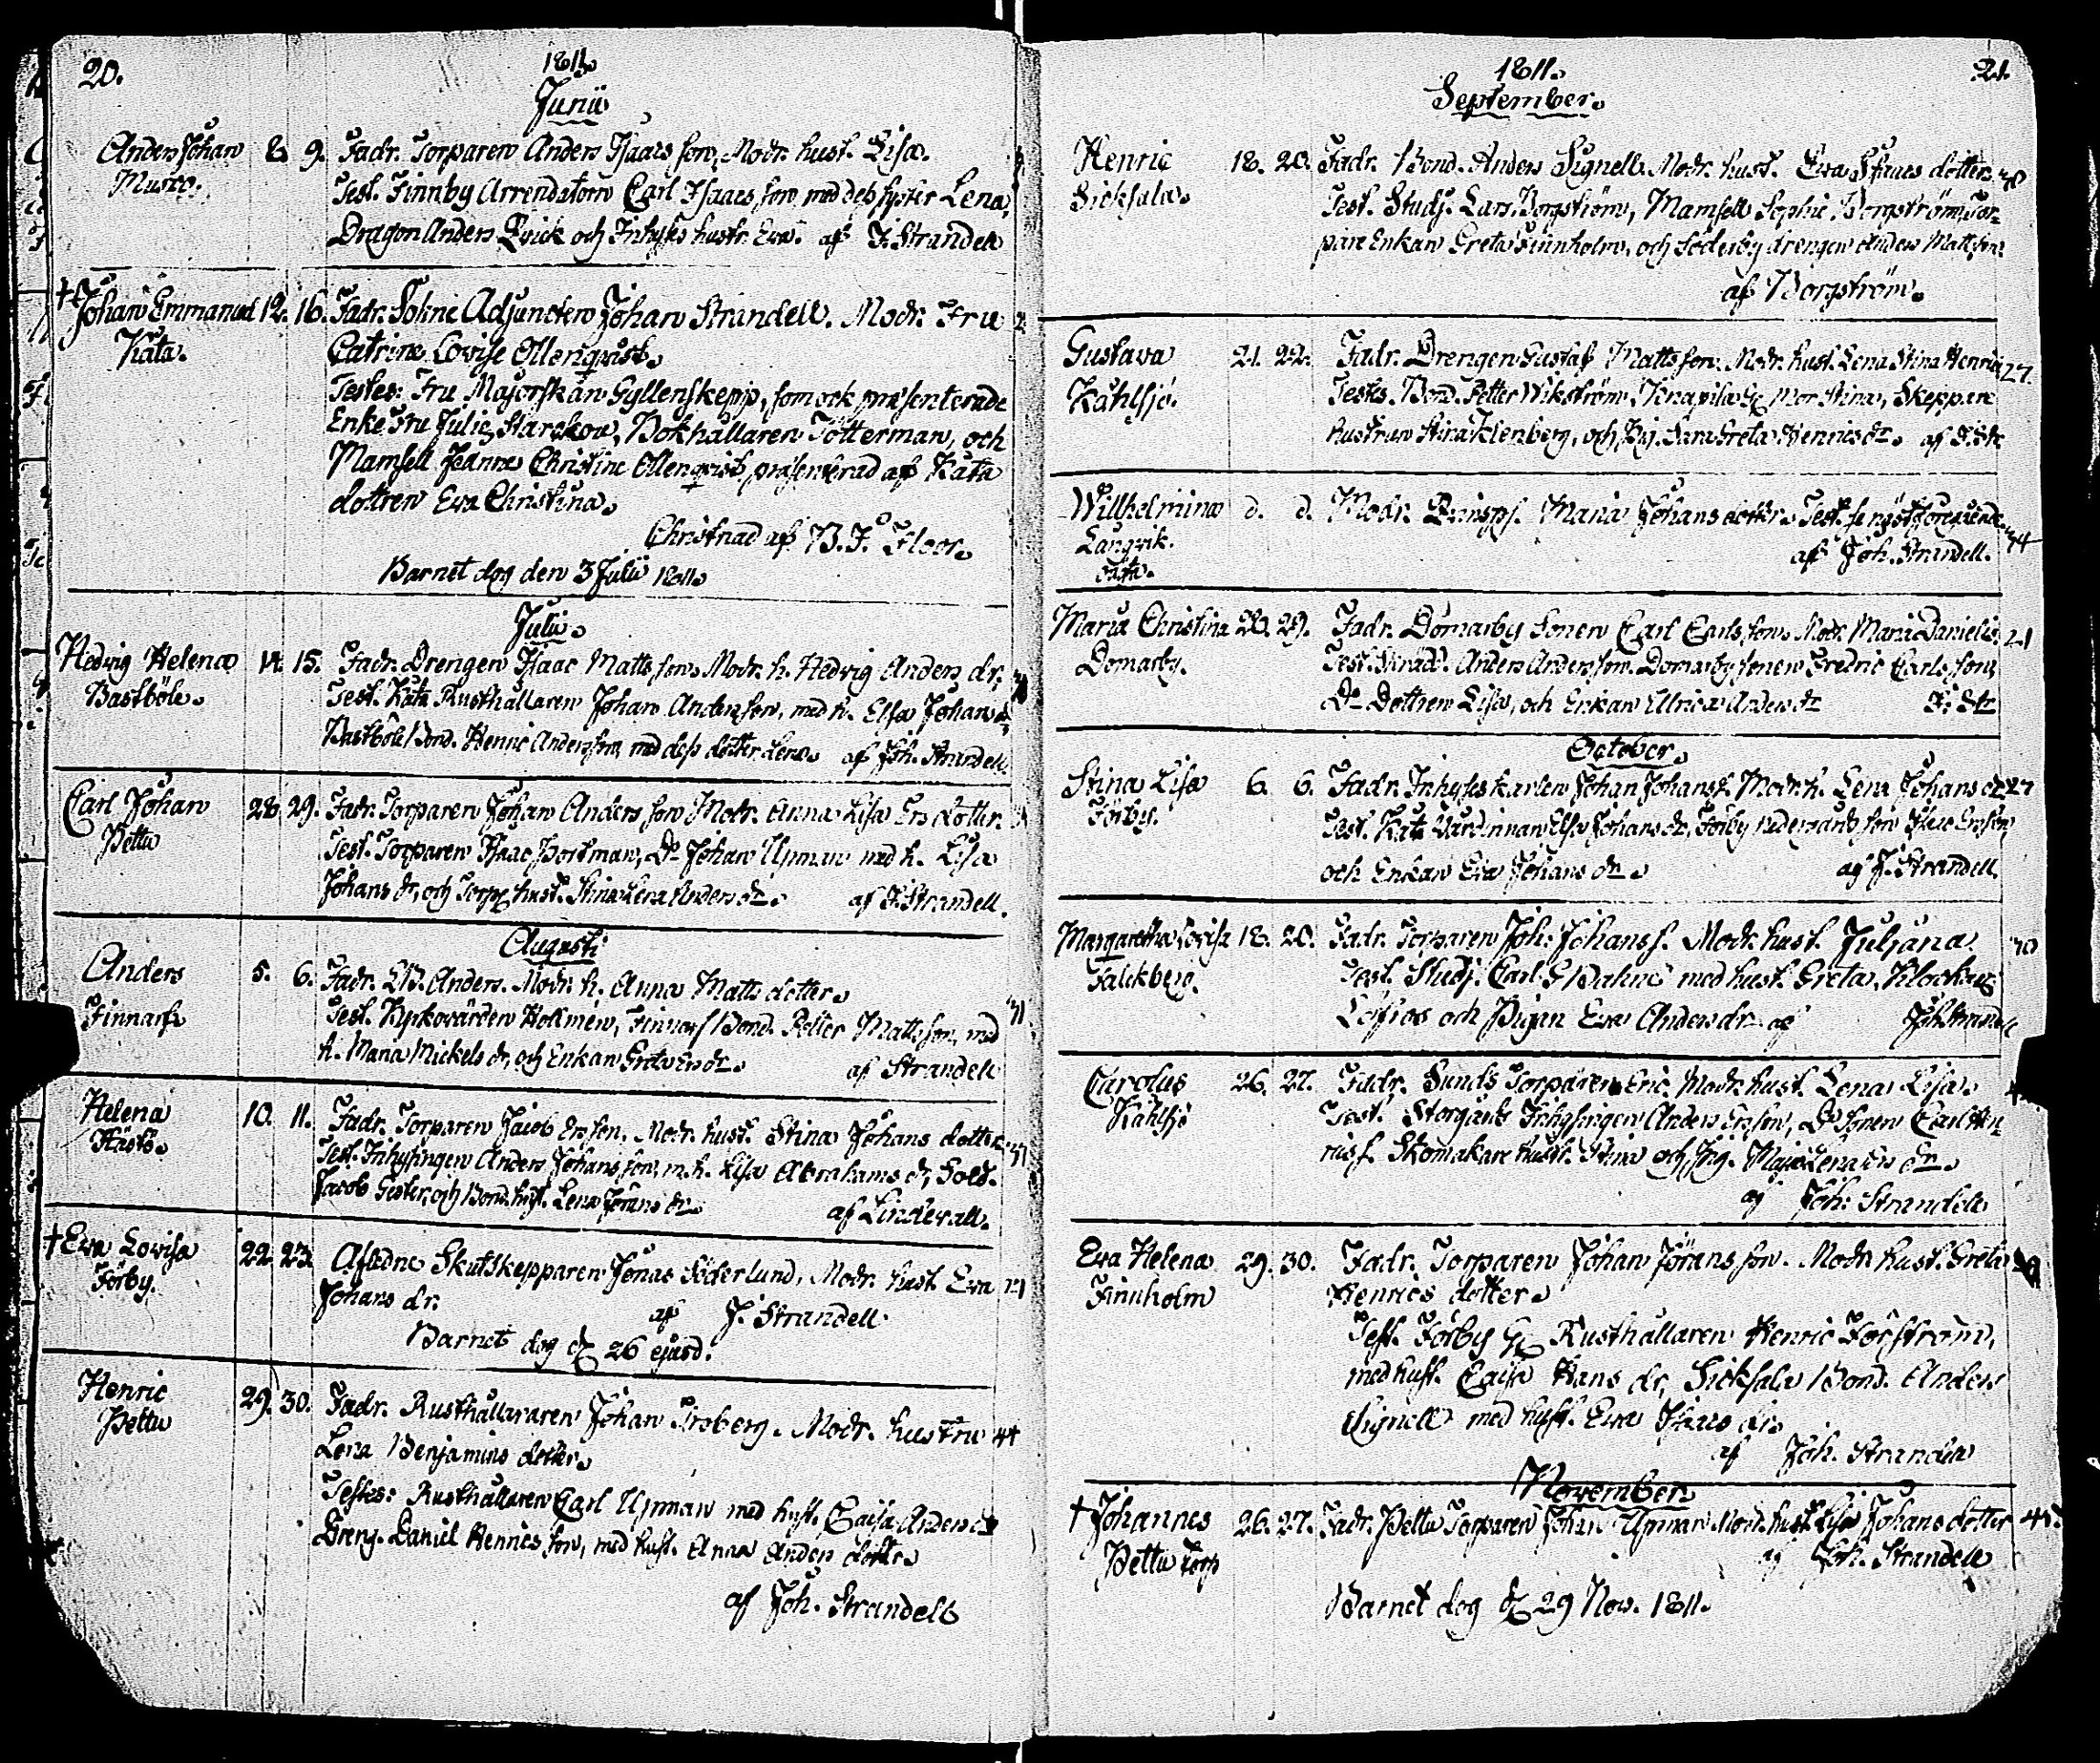 20.
1811.
Junii
Anders Johan 8. 9. Fadr. Torparen Anders Isaacs son, Modr. hust. Lisa.
Test. Finnby Arrendatorn Carl Isaacs son med dess syster Lena,
Dragon Anders Qvick och Inhyses hustr. Eva. af J. Strandell
† Johan Emmanuel 12. 16. Fadr. Sokne Adjuncten Johan Strandell. Modr. Fru
Kåta. Catrina Lovisa Ollenqvist.
Testes: Fru Majorskan Gyllenskepp, som ock præsenterade
Enke Fru Julie Starckow, Bokhållaren Tötterman, och
Mamsell Jeanne Christine Ollenqvist, præsenterad af Kåta
dottren Eva Christina.
Christnad af B. J. Floor.
Barnet dog den 3 Julii 1811.
Julii.
Hedvig Helena 14. 15. Fadr. Drengen Isaac Matts son. Modr. h. Hedvig Anders dr,
Bastböle. Test. Kåta Rusthållaren Johan Anders son, med h. Elsa Johans dr,
Bastböle Bond. Henric Anders son, med dess dotter Lena. af Joh. Strandell
Carl Johan 28. 29. Fadr. Torparen Johan Anders son Modr. Anna Lisa Ers dotter.
Pettu Test. Torparen Isaac Portman, Do Johan Upman med h. Lisa
Johans dr, och Torp. hust. Stina Lena Anders dr. af J. Strandell.
Augusti
Anders 5. 6. Fadr. Anders. Modr. h. Anna Matts dotter.
Finnarf. Test. Kyrkovärden Hollmén, Finnarf Bond. Petter Matts son, med
h. Maria Mickels dr, och Enkan Greta Ers dr. af Strandell
Helena 10. 11. Fadr. Torparen Jacob Ersson. Modr. hust. Stina Johans dotter.
Hästö. Test. Inhysingen Anders Johans son, m. h. Lisa Abrahams dr, Sold.
Jacob Gester, och Bond. hust. Lena Jörans dr. af Lindevall.
† Eva Lovisa 22. 23. Aflidne Skutskepparen Jonas Söderlund, Modr. hust. Eva 21
Förby. Johans dr. af J. Strandell.
Barnet dog d. 26 ejusd.
Henric 29. 30. Fadr. Rusthållararen Johan Broberg. Modr. hustru 44
Pettu Lena Benjamins dotter.
Testes: Rusthållaren Carl Upman med hust. Caisa Anders dr
Dreng. Daniel Henrics son, med hust. Anna Anders dotter.
af Joh. Strandell
21.
1811.
September.
Henric 18. 20. Fadr. Bond. Anders Signell. Modr. hust. Eva Isaacs dotter.
Sicksala. Test. Studj. Lars Borgström, Mamsell Sophie Borgström, Tor-
pare Enkan Greta Finnholm, och Söderby drengen Anders Mattsson
af Borgström.
Gustava 21. 22. Fadr. Drengen Gustaf Matts son. Modr. hust. Lena Stina Henrics 27.
Kahlsjö. Testes. Bond. Petter Wikström, Mor Stina, Skeppare
hustrun Stina Klenberg, och Pig. Sara Greta Henrics dr. af J. Str
Willhelmina d. d. Modr. Qvinsp. Maria Johans dotter. Test. som
Långvik. af Joh. Strandell.
Maria Christina 28. 29. Fadr. Domarby Sonen Carl Carls son. Modr. Maria Daniels 21
Domarby. Test. Anders Anders son. Domarby sonen Fredric Carls son,
Do Dottren Lisa, och Enkan Ulrica Anders dr J. Str
October.
Stina Lisa 6. 6. Fadr. Inhyses karlen Johan Johanss. Modr. h. Lena Johans dr. 27
Förby. Test. Kåta Värdinnan Elsa Johans dr, Förby son Isaac Ersson
och Enkan Eva Johans dr. af J. Strandell.
Margaretha Lovisa 18. 20. Fadr. Torparen Joh. Johanss. Modr. hust. Juliana
Falckberg. Test. Studj. Carl G Dahn med hust. Greta, Klockar
Löfros och Pigan Eva Anders dr af Joh. Strandell
Carolus 26. 27. Fadr. Sunds Torparen Eric. Modr. hust. Lena Lisa.
Kahlsjö Test. Storgårds Inhysingen Anders Ersson, Do Sonen Carl Hen
rics s. Skomakare hust. Stina och Pig. Maja Lena Ers dr.
af Joh. Strandell
Eva Helena 29. 30. Fadr. Torparen Johan Jörans son. Modr. hust. Greta
Finnholm Henrics dotter.
Test. Förby Rusthållaren Henric Förström,
med hust. Caisa Hans dr, Sicksala Bond. Anders
Signell med hust. Eva Isaacs dr.
af Joh. Strandell
November.
† Johannes 26. 27. Fadr. Pettu Torparen Johan Upman Modr. hust. Lisa Johans dotter 45.
Pettu torp af Joh. Strandell
Barnet dog d. 29 Nov. 1811.